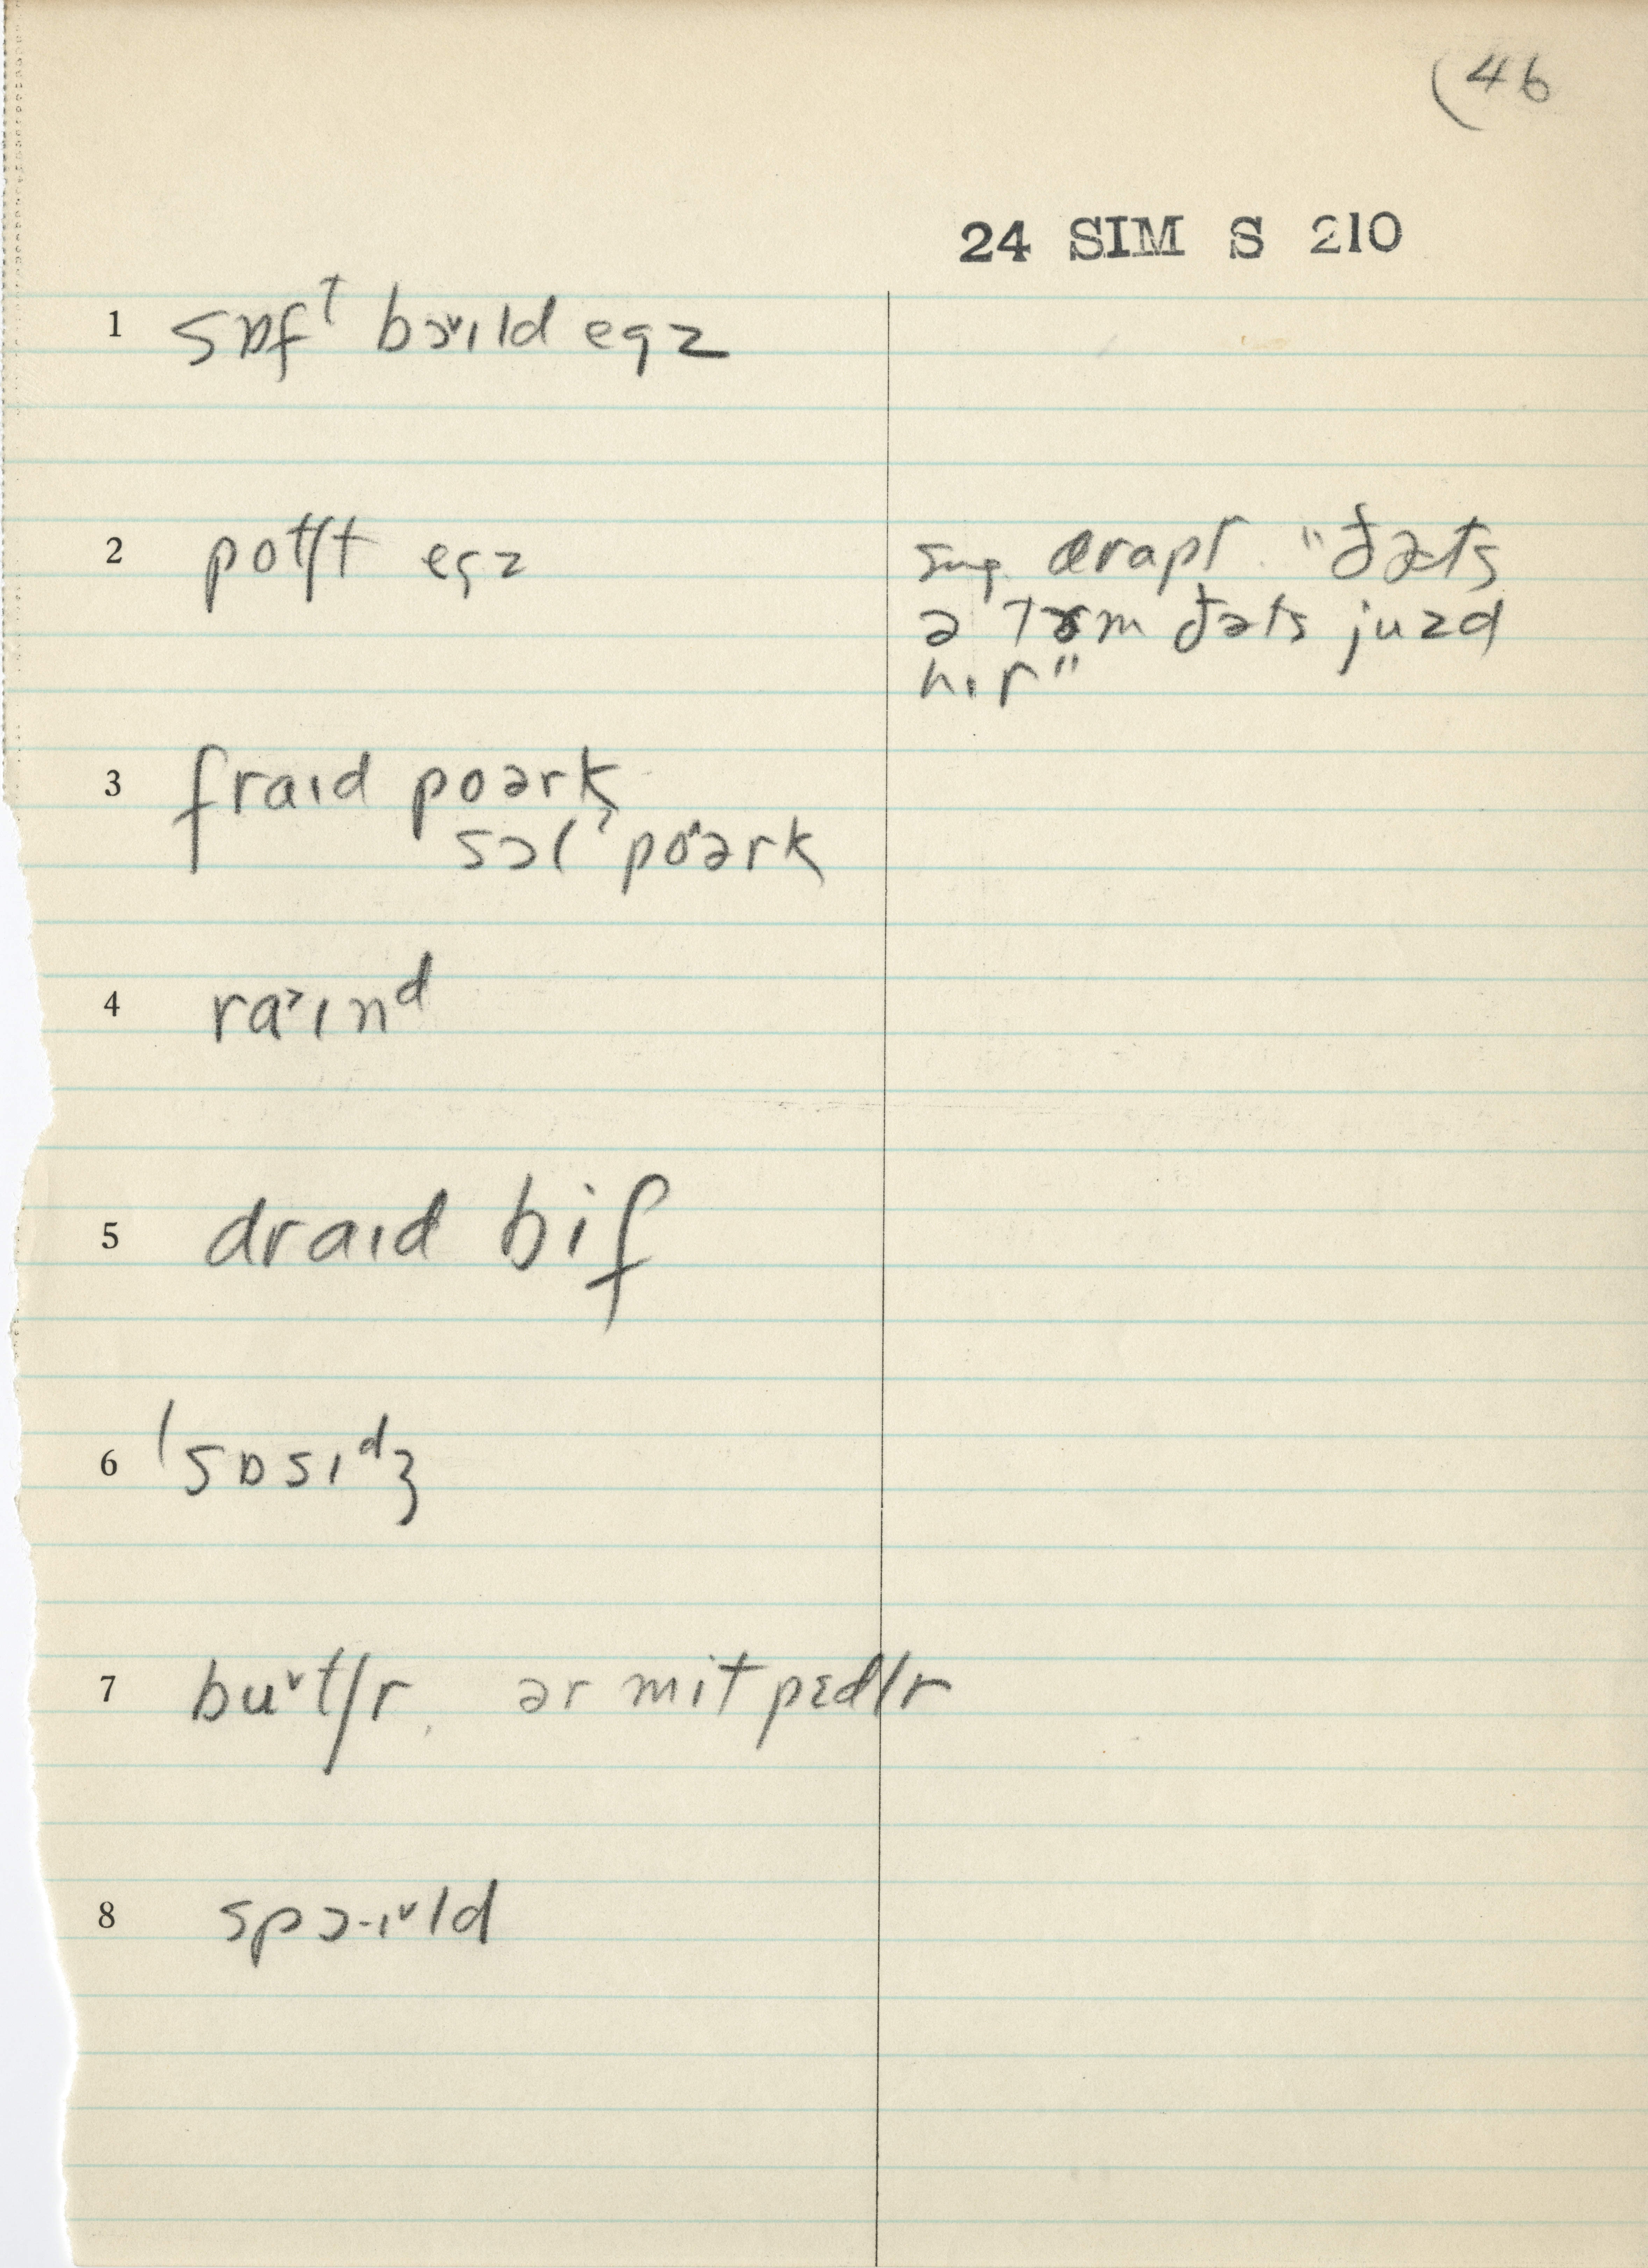 (46
24 SIM S 210
1 sɒfᵗ bɔ˅ɪld egz
2 potʃt egz
sug. drapt. "ðəts
ə tɚm ðəts juzd
hɪr"
3 fraɪd poərk
sɔlˀ po^ərk
4 ra˃ɪnᵈ
5 draɪd bif
6 ˈsɒsɪᵈʒ
7 bu˅tʃr, ər mit pɛdlr
8 spɔ·ɪ˅ld